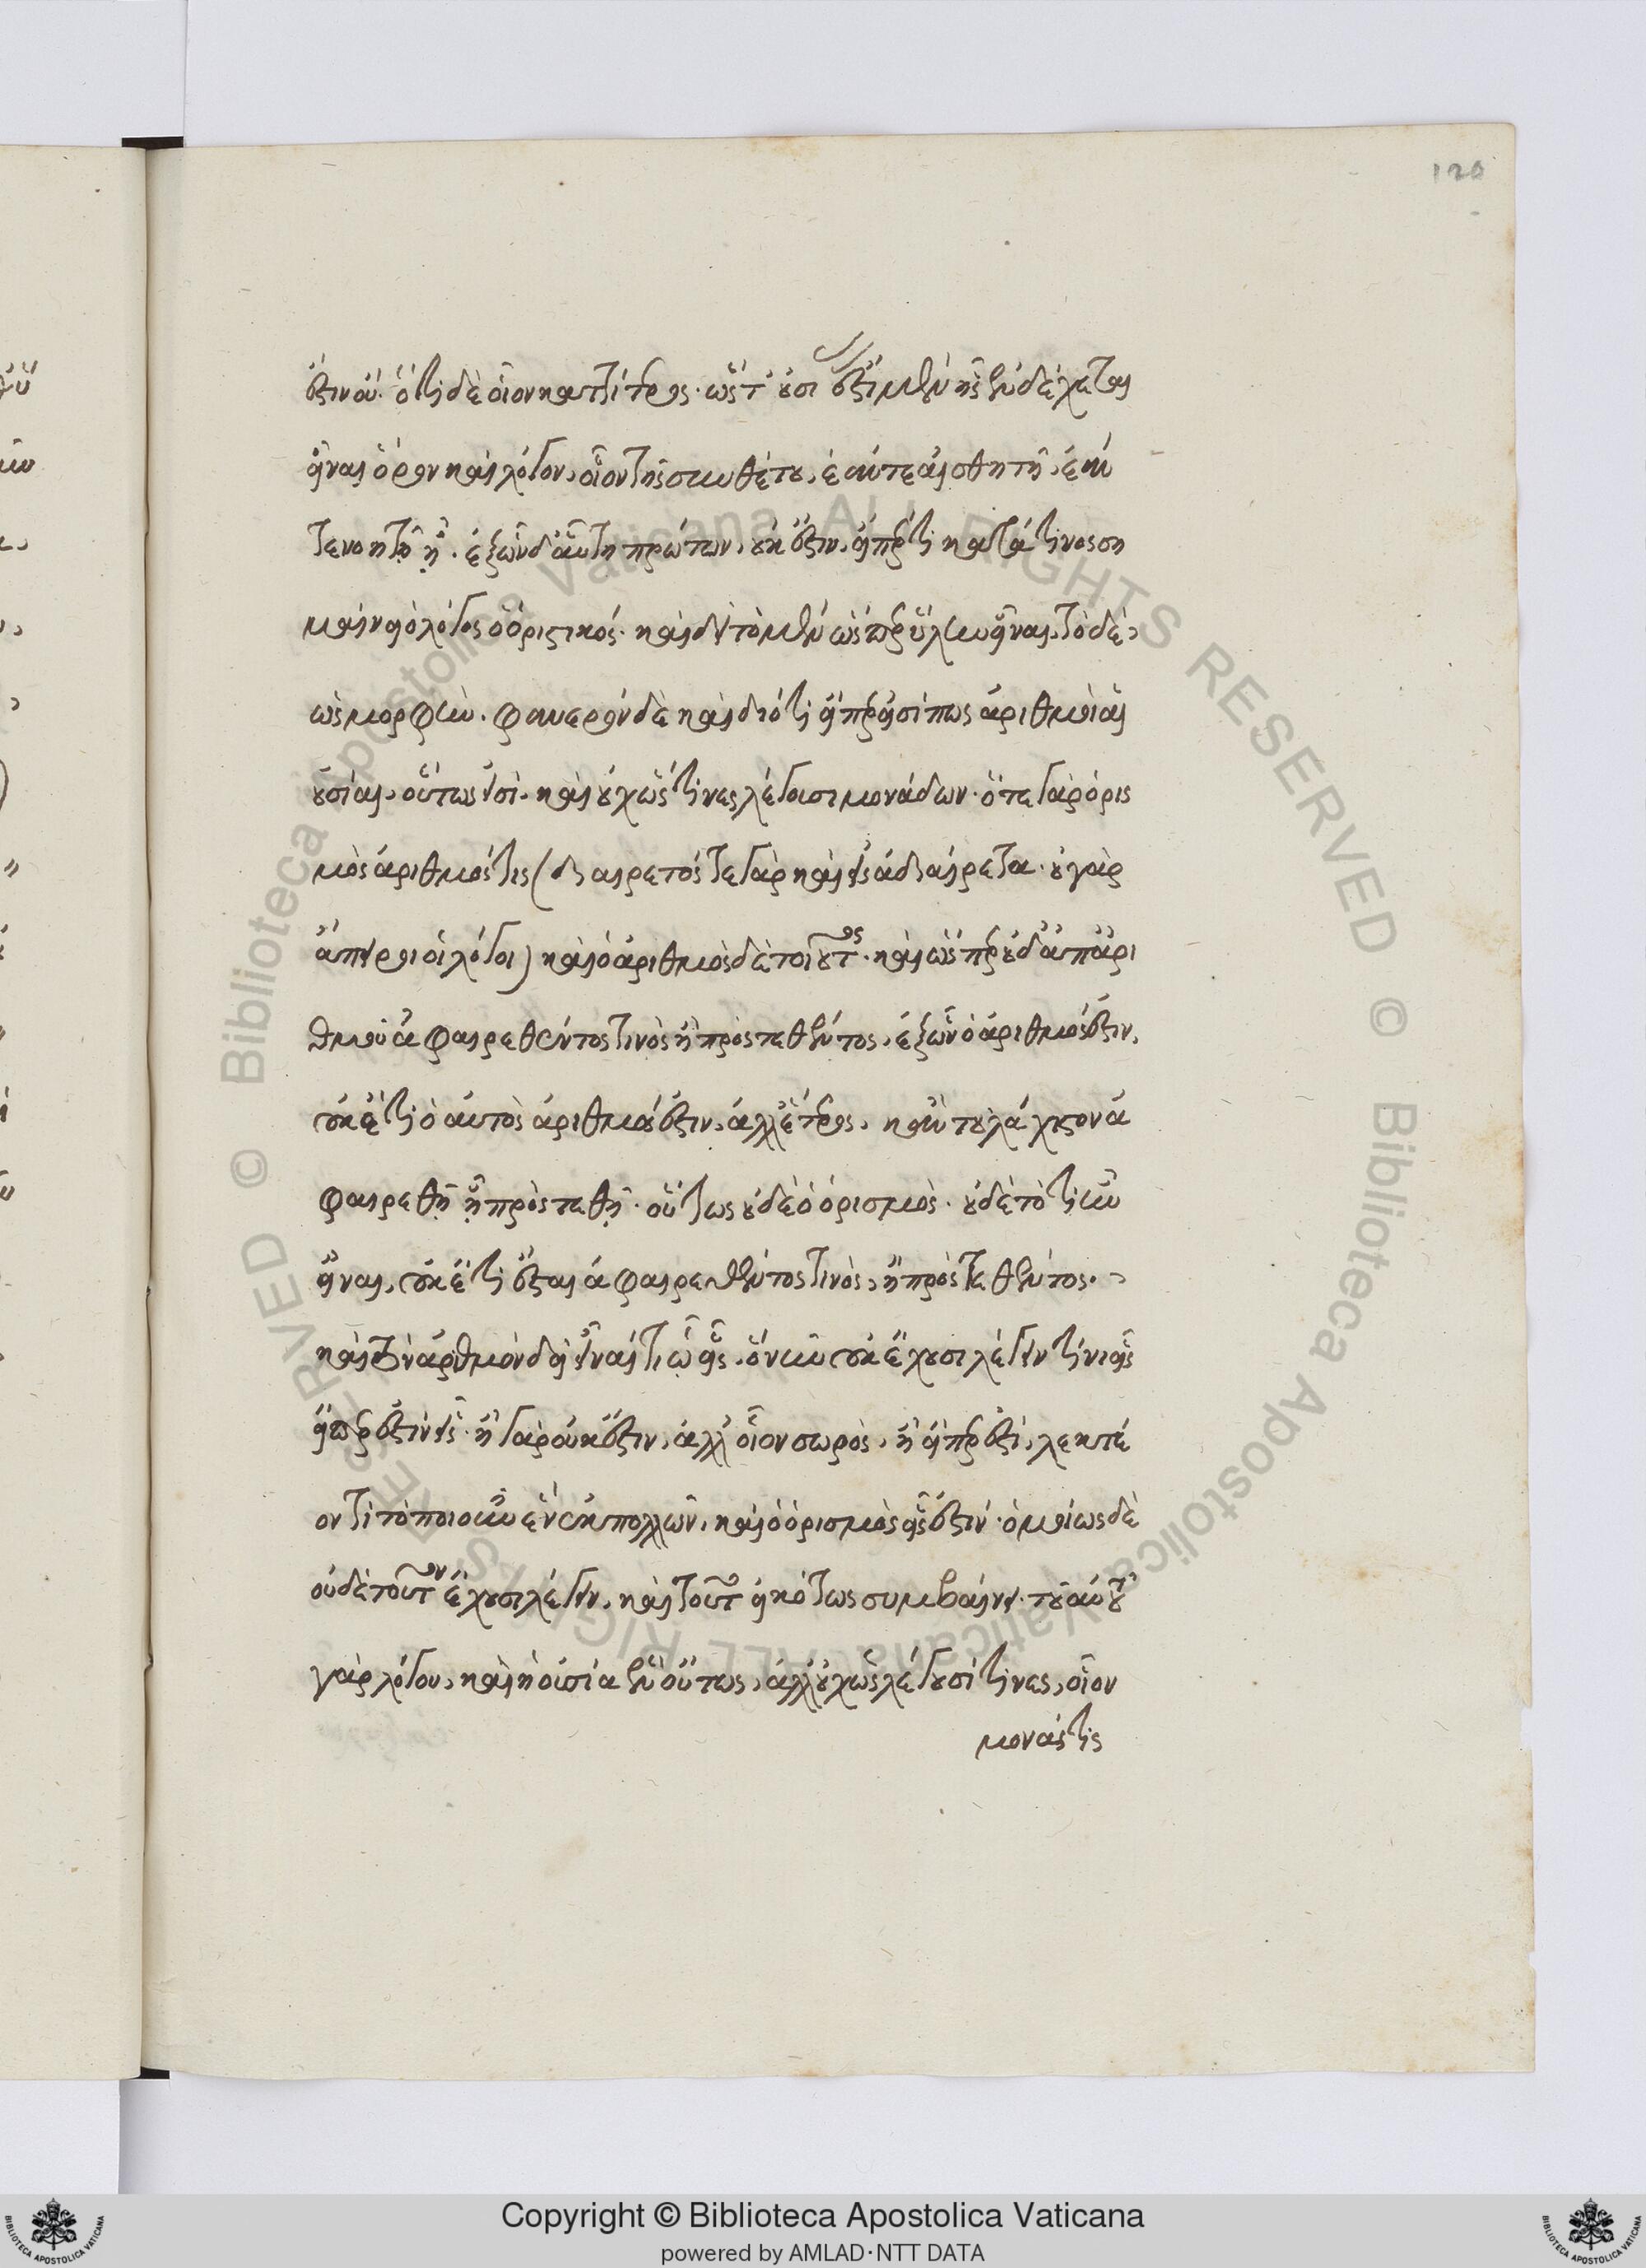 120
ἐστὶν οὔ. ὅτι δὲ οἷον καττίτερος. ὥστ' οὐσί ἐστι μὲν ἧς ἐνδέχεται
εἶναι ὅρον καὶ λόγον, οἷον τῆς συνθέτου, ἐάν τε αἰσθητὴ, ἐάν
τε νοητὴ ᾖ. ἐξ ὧν δ' αὕτη πρώτων, οὐκ ἔστιν, εἴπερ τὶ κατά τινος ση
μαίνει ὁ λόγος ὁ ὁριστικός. καὶ δεῖ τὸ μὲν ὥσπερ ὕλην εἶναι, τὸ δὲ,
ὡς μορφήν. φανερὸν δὲ καὶ διότι εἴπερ εἰσί πως ἀριθμοὶ αἱ
οὐσίαι, οὕτως εἰσὶ, καὶ οὐχ ὥς τινες λέγουσι μονάδων. ὅ τε γὰρ ὁρισ
μὸς ἀριθμός τις (διαιρετός τε γὰρ καὶ εἰς ἀδιαίρετα. οὐ γὰρ
ἄπειροι οἱ λόγοι) καὶ ὁ ἀριθμὸς δὲ τοιοῦτος. καὶ ὥσπερ οὐδ' ἀπ' ἀρι
θμοῦ ἀφαιρεθέντος τινὸς ἢ προστεθέντος, ἐξ ὧν ὁ ἀριθμός ἐστιν,
οὐκέτι ὁ αὐτὸς ἀριθμός ἐστιν, ἀλλ' ἕτερος, κἂν τοὐλάχιστον ἀ
φαιρεθῇ ἢ προστεθῇ. οὕτως οὐδὲ ὁ ὁρισμὸς. οὐδὲ τὸ τί ἦν
εἶναι, οὐκέτι ἔσται ἀφαιρεθέντος τινὸς, ἢ προστεθέντος.
καὶ τὸν ἀριθμὸν δεῖ εἶναί τι ᾧ εἷς. ὃν νῦν οὐκ ἔχουσι λέγειν τίνι εἷς
εἴπερ ἐστὶν εἷς. ἢ γὰρ οὐκ ἔστιν, ἀλλ' οἷον σωρὸς, ἢ εἴπερ ἐστὶ, λεκτέ
ον τί τὸ ποιοῦν ἓν ἐκ πολλῶν, καὶ ὁ ὁρισμὸς εἷς ἐστίν. ὁμοίως δὲ
οὐδὲ τοῦτον ἔχουσι λέγειν, καὶ τοῦτο εἰκότως συμβαίνει. τοῦ αὐτοῦ
γὰρ λόγου, καὶ ἡ οὐσία ἓν οὕτως, ἀλλ' οὐχ ὡς λέγουσί τινες, οἷον
μονάς τις
Copyright © Biblioteca Apostolica Vaticana
powered by AMLAD·NTT DATA